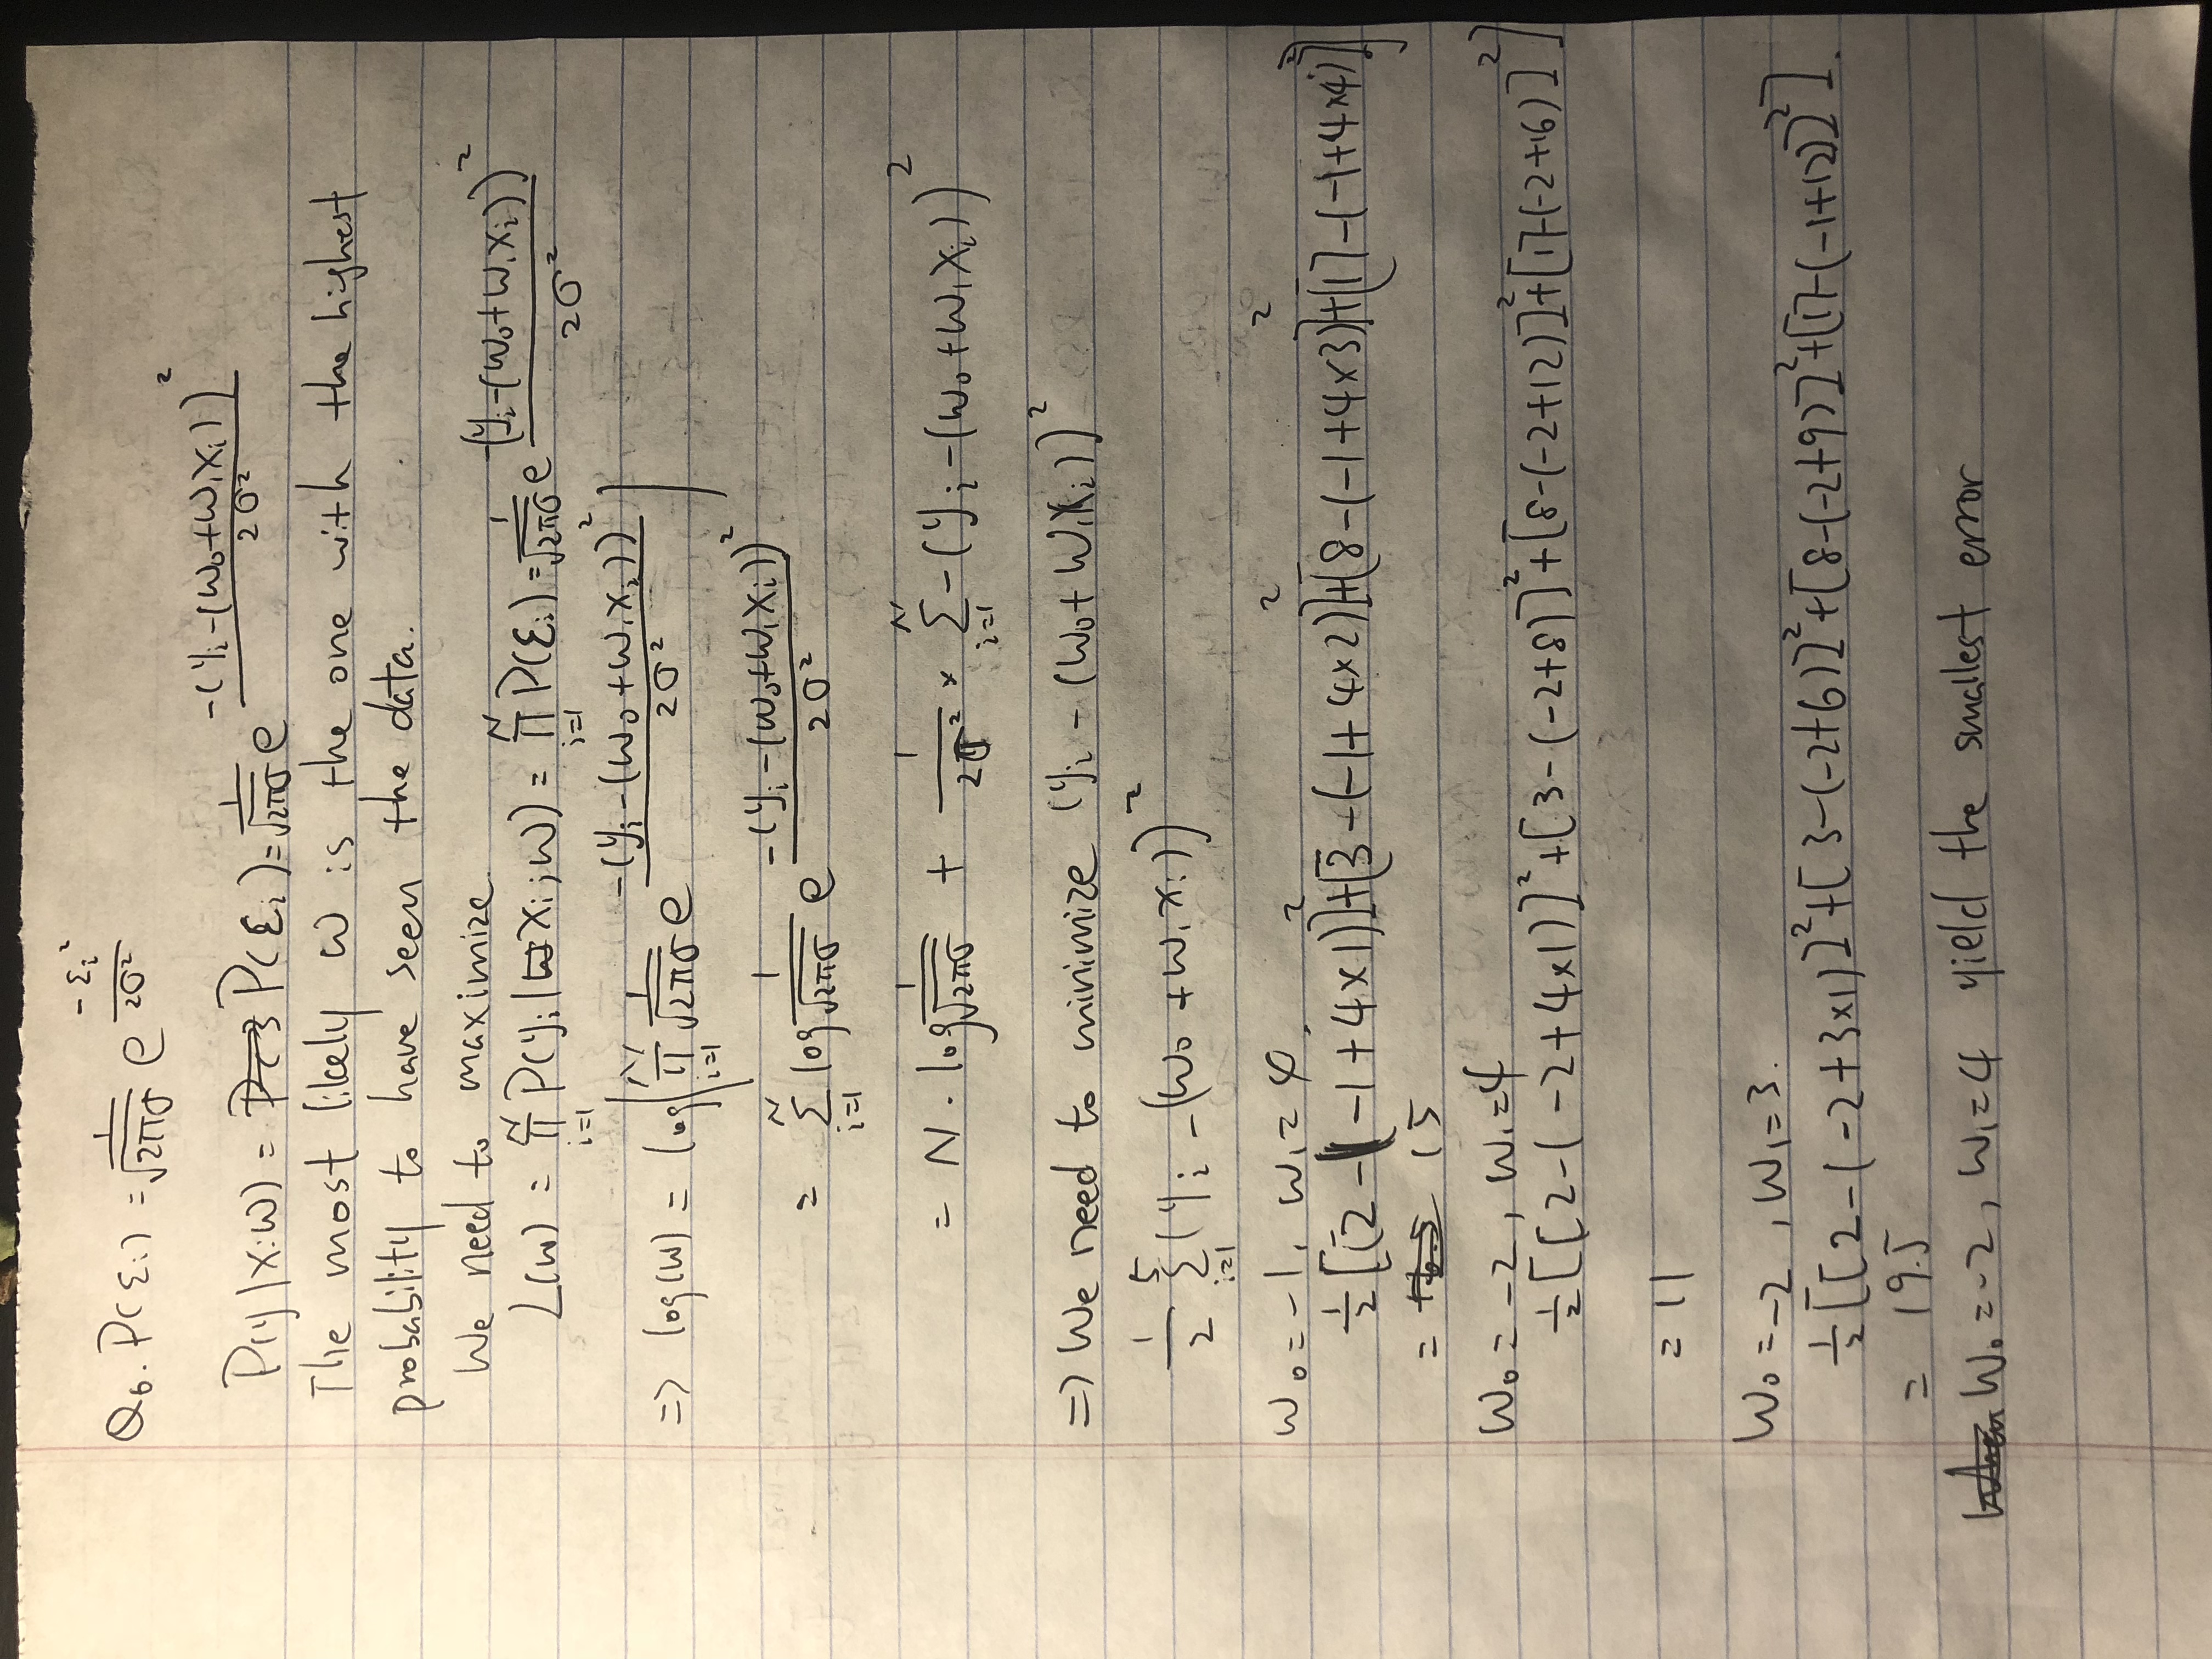 Q6. P(εᵢ) = 1/√2πσ e^(-εᵢ²/2σ²)
P(y|x;w) = P(εᵢ) = 1/√2πσ e^(-(yᵢ-(w₀+w₁xᵢ))²/2σ²)
The most likely w is the one with the highest
probability to have seen the data.
We need to maximize.
L(w) = ∏ᵢ₌₁ᴺ P(yᵢ|xᵢ;w) = ∏ᵢ₌₁ᴺ P(εᵢ) = 1/√2πσ e^(-(yᵢ-(w₀+w₁xᵢ))²/2σ²)
=> log(w) = log[∏ᵢ₌₁ᴺ 1/√2πσ e^(-(yᵢ-(w₀+w₁xᵢ))²/2σ²)]
= Σᵢ₌₁ᴺ log 1/√2πσ e^(-(yᵢ-(w₀+w₁xᵢ))²/2σ²)
= N · log 1/√2πσ + 1/2σ² × Σᵢ₌₁ᴺ -(yᵢ-(w₀+w₁xᵢ))²
=> We need to minimize (yᵢ-(w₀+w₁xᵢ))²
1/2 Σᵢ₌₁⁵ (yᵢ-(w₀+w₁xᵢ))²
w₀=-1, w₁=4.
1/2[[2-(-1+4×1)]²+[3-(-1+4×2)]²+[8-(-1+4×3)]²+[17-(-1+4×4)]²]
= 15
w₀=-2, w₁=4
1/2[[2-(-2+4×1)]²+[3-(-2+8)]²+[8-(-2+12)]²+[17-(-2+16)]²]
= 11
w₀=-2, w₁=3.
1/2[[2-(-2+3×1)]²+[3-(-2+6)]²+[8-(-2+9)]²+[17-(-1+12)]²].
= 19.5
w₀=-2, w₁=4 yield the smallest error